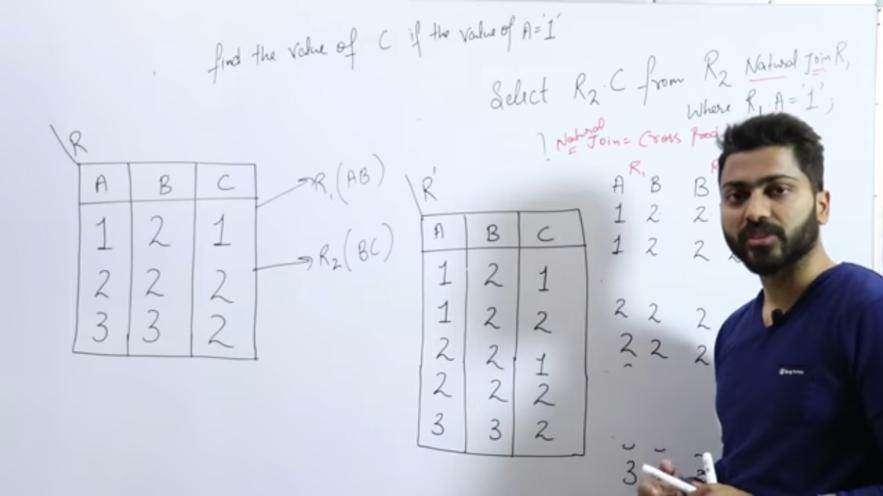 find the value of C if the value of A='1'
Select R2.C from R2 Natural Join R1
Where R1.A='1';
Natural Join = Cross
R
A B C
1 2 1
2 2 2
3 3 2
R1(AB)
R2(BC)
R'
A B C
1 2 1
1 2 2
2 2 1
2 2 2
3 3 2
R1
A B B
1 2 2
1 2 2
2 2 2
2 2 2
3